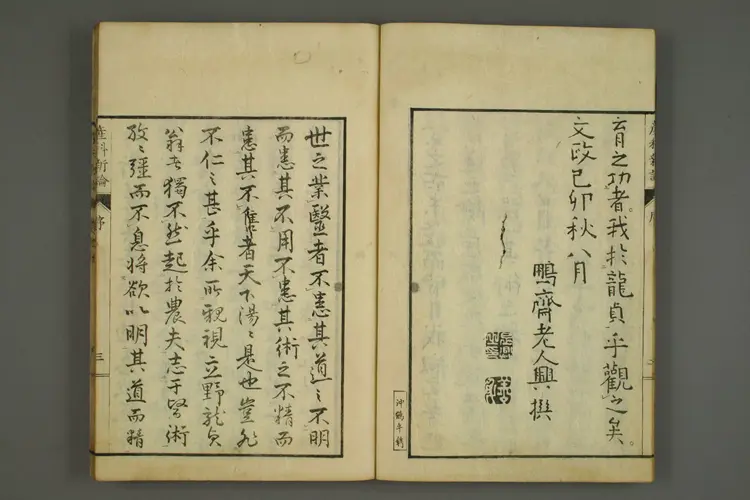 育之功者。我於龍貞乎觀之矣。
文政己卯秋八月
鵬齋老人興撰
世之業醫者不患其道之不明
而患其不用不患其術之不精而
患其不售者天下湯々是也豈非
不仁之甚乎余所親視立野龍貞
翁者獨不然起於農夫志于醫術
孜々彊而不息將欲以明其道而精
産科新論 序 三